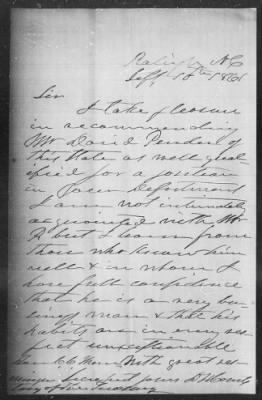 Raleigh N C
Sept 18th 1861
Sir
I take pleasure
in recommending
Mr David Pender of
this State as well qual-
ified for a position
in your Department
I am not intimately
acquainted with Mr
P. but I learn from
those who know him
well & in whom I
have full confidence
that he is a very bu-
siness man & that his
habits are in every res-
pect unexceptionable
With great es-
yours